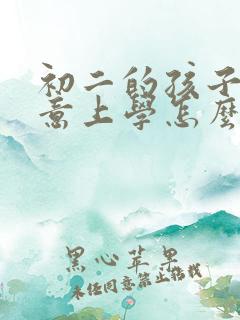 初二的孩子
意上學怎麼
黑心苹果
未经同意禁止搬载